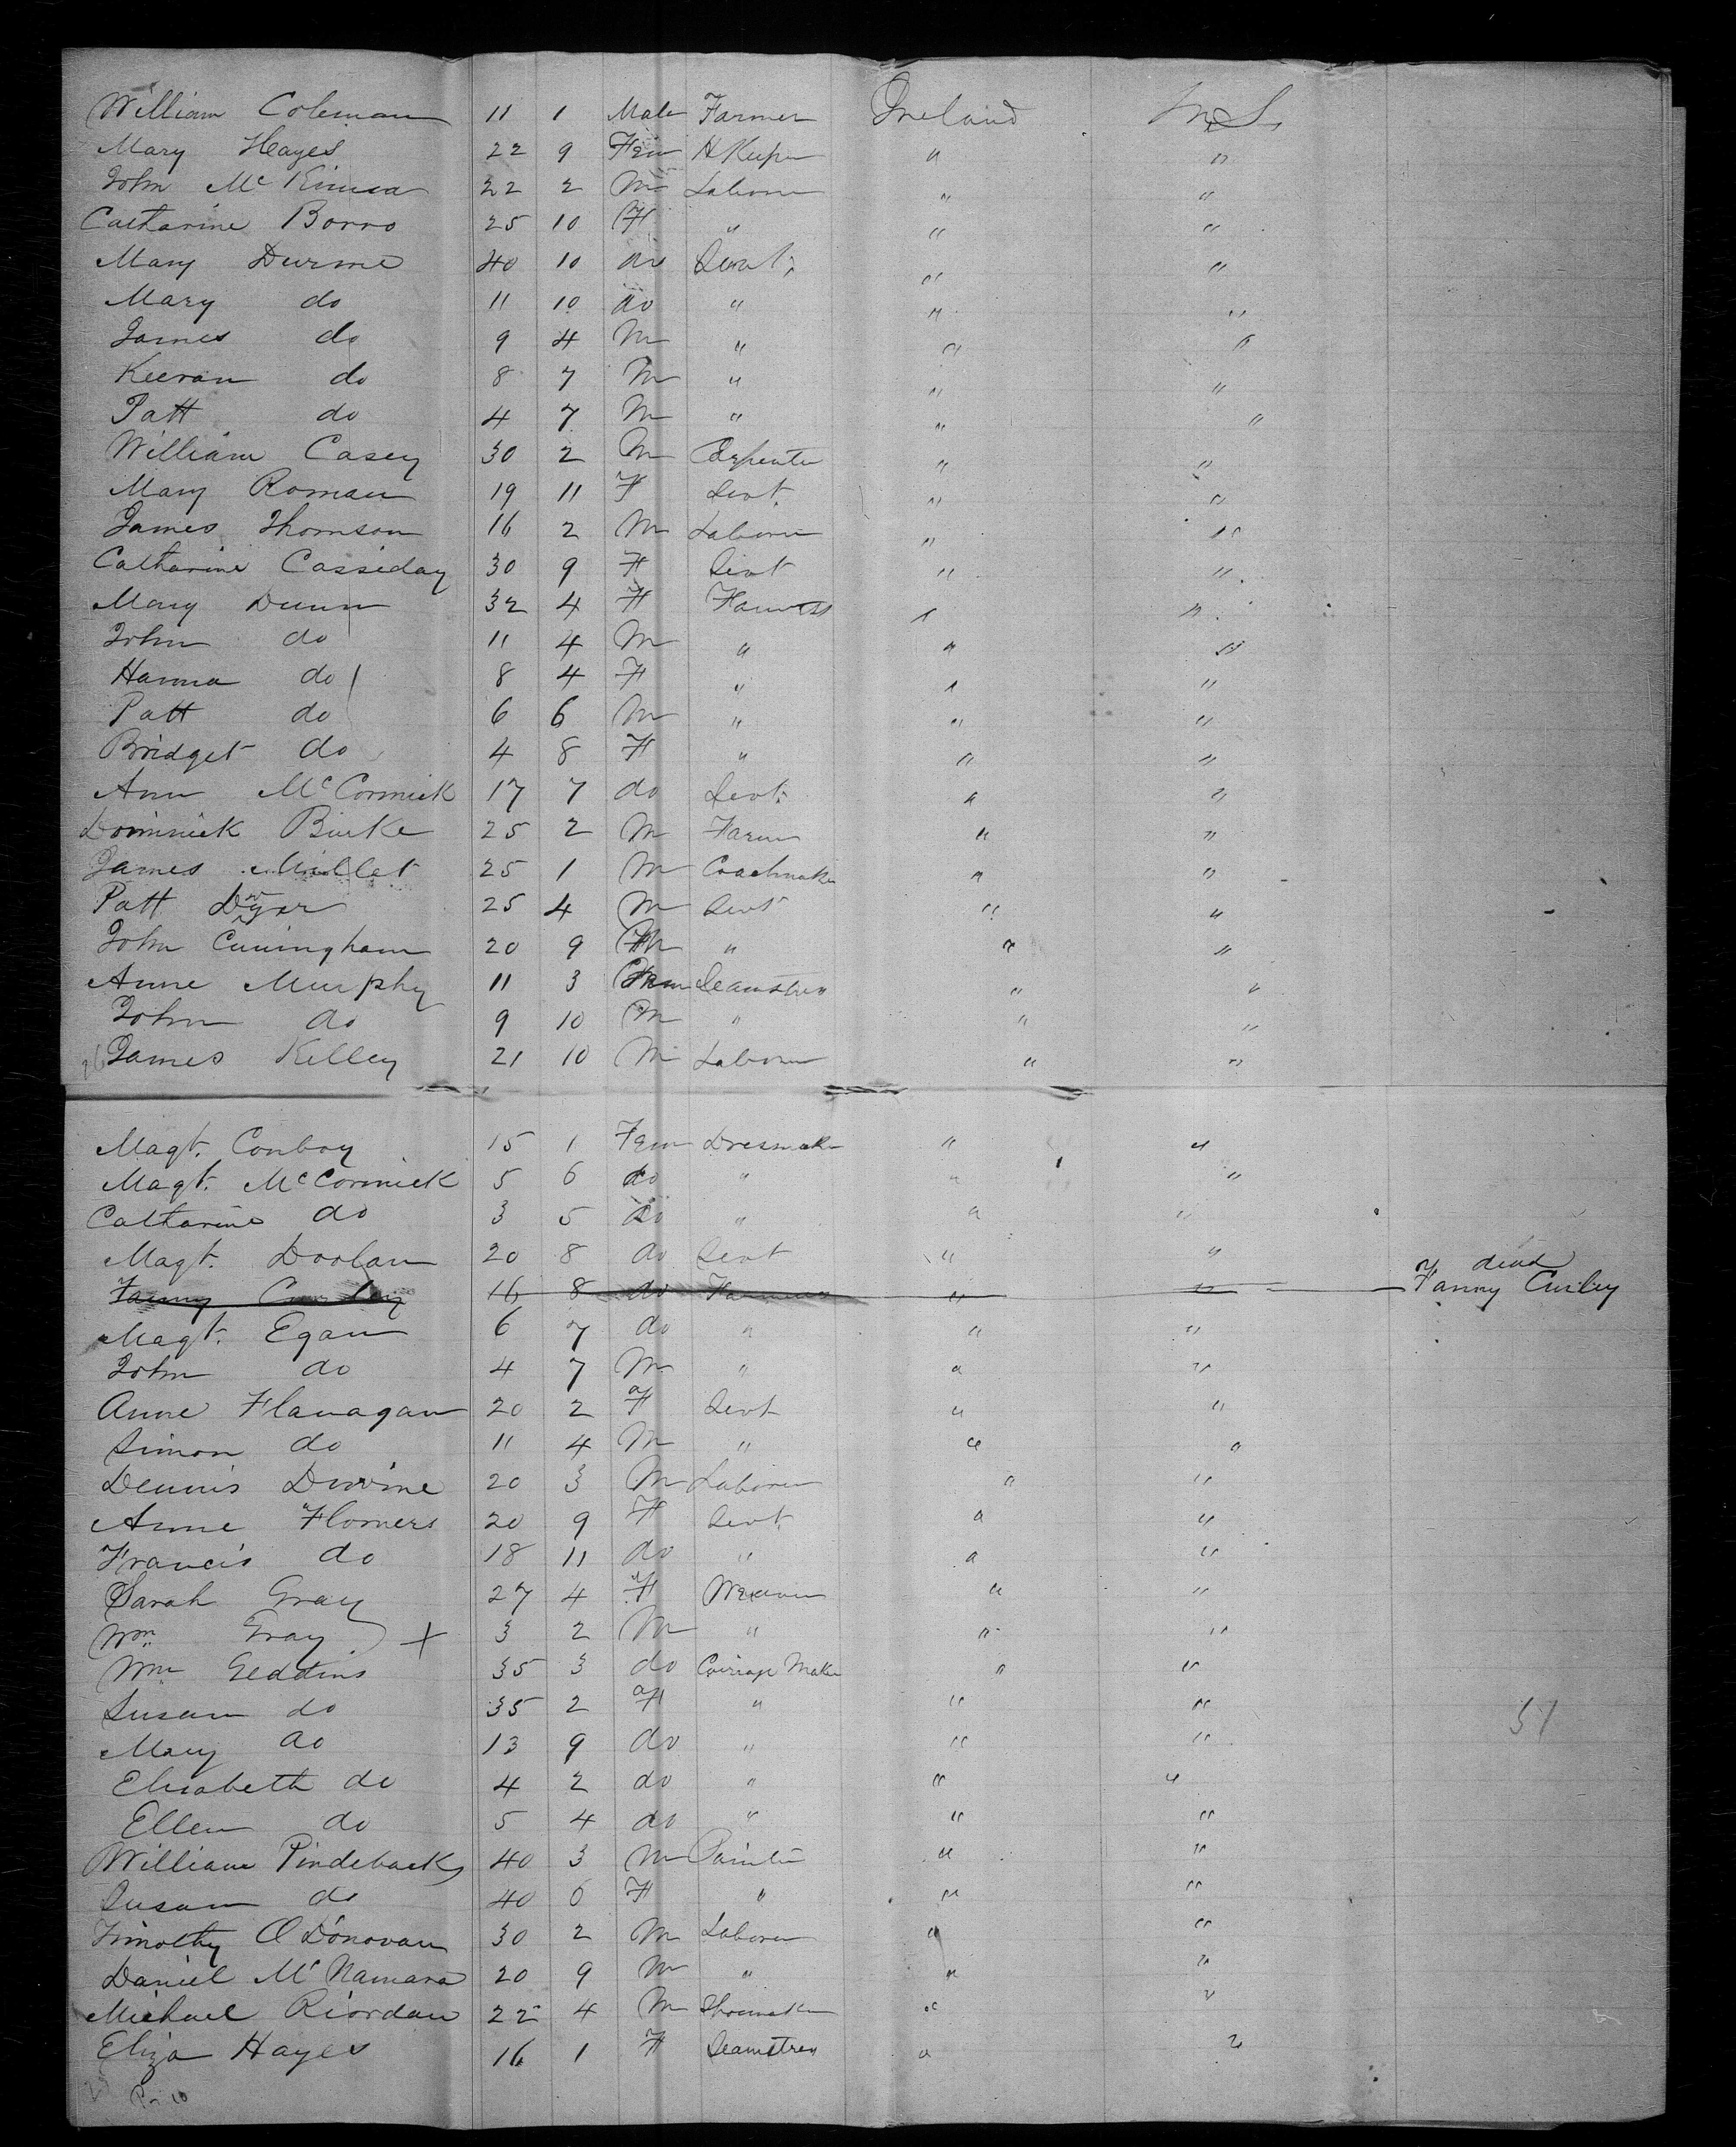 William Coleman 11 1 Male Farmer Ireland U.S.
Mary Hayes 22 9 Fem H Keeper " "
John Mc 22 2 M Laborer " "
Catharine Borro 25 10 F " " "
Mary Durine 40 10 do Servt. " "
Mary do 11 10 do " " "
James do 9 4 M " " "
Keeran do 8 7 M " " "
Patt do 4 7 M " " "
William Casey 30 2 M Carpenter " "
Mary Roman 19 11 F Servt. " "
James Thomson 16 2 M Laborer " "
Catharine Cassiday 30 9 F Servt " "
Mary Dunn 32 4 F Farmess " "
John do 11 4 M " " "
Hanna do 8 4 F " " "
Patt do 6 6 M " " "
Bridget do 4 8 F " " "
Ann McCormick 17 7 do Servt. " "
Dominick Burke 25 2 M Farmer " "
James Millet 25 1 M Coachmaker " "
Patt 25 4 M Servt " "
John Cuningham 20 9 M " " "
Anne Murphy 11 3 Fem Seamstress " "
John do 9 10 M " " "
26 James Kelley 21 10 M Laborer " "
Magt. Conboy 15 1 Fem Dressmaker " "
Magt. McCormick 5 6 do " " "
Catharine do 3 5 do " " "
Magt. Doolan 20 8 do Servt " "
dead
Fanny Curley 16 8 do Farmess " " Fanny Curley
Magt. Egan 6 7 do " " "
John do 4 7 M " " "
Anne Flanagan 20 2 F Servt " "
Simon do 11 4 M " " "
Dennis Durine 20 3 M Laborer " "
Anne Flomers 20 9 F Servt. " "
Francis do 18 11 do " " "
Sarah Gray 27 4 F Weaver " "
Wm Gray + 3 2 M " " "
Wm Geddins 35 3 do Carriage Maker " "
Susan do 35 2 F " " "
Mary do 13 9 do " " " 51
Elisabeth do 4 2 do " " "
Ellen do 5 4 do " " "
William Pindebacks 40 3 M Painter " "
Susan do 40 6 F " " "
Timothy O'Donovan 30 2 M Laborer " "
Daniel McNamara 20 9 M " " "
Michael Riordan 22 4 M Shoemaker " "
Eliza Hayes 16 1 F Seamstress " "